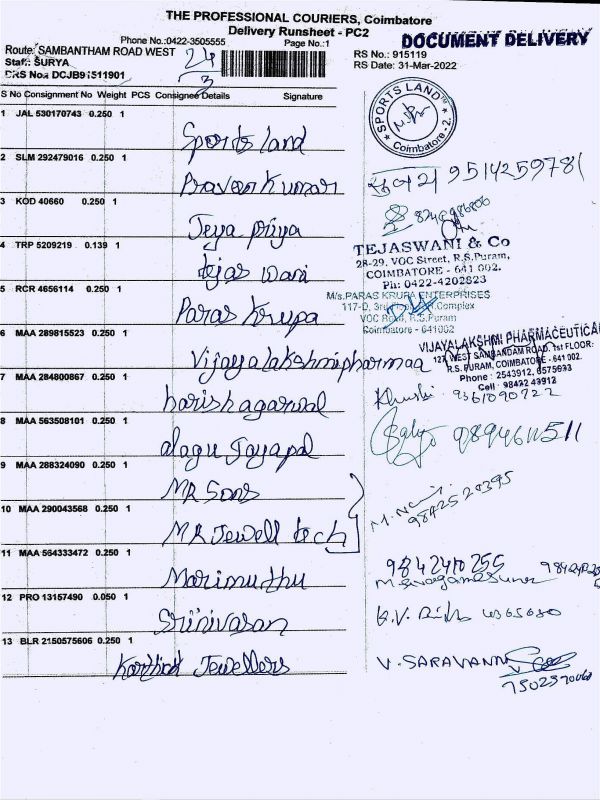 THE PROFESSIONAL COURIERS, Coimbatore
Delivery Runsheet - PC2
DOCUMENT DELIVERY
Phone No.:0422-3505555
Page No.:1
Route: SAMBANTHAM ROAD WEST
RS No.: 915119
Staff: SURYA
24/3
RS Date: 31-Mar-2022
DRS No.: DCJB91511901
S No Consignment No Weight PCS Consignee Details Signature
1 JAL 530170743 0.250 1
Sports land
SPORTS LAND
Coimbatore - 2.
2 SLM 292479016 0.250 1
Praveen Kumar
9514259781
3 KOD 40660 0.250 1
Jeya priya
4 TRP 5209219 0.139 1
tejas wani
TEJASWANI & Co
28-29, VOC Street, R.S.Puram,
COIMBATORE - 641 002.
Ph: 0422-4202823
5 RCR 4656114 0.250 1
Paras Krupa
M/s.PARAS KRUPA ENTERPRISES
117-D, 3rd Complex
VOC Road, R.S.Puram
Coimbatore - 641002
6 MAA 289815523 0.250 1
Vijayalakshmi pharmaa
VIJAYALAKSHMI PHARMACEUTICAL
127, WEST SAMBANDAM ROAD, 1st FLOOR:
R.S. PURAM, COIMBATORE - 641 002.
Phone : 2543912, 6575693
Cell : 98422 43912
7 MAA 284800867 0.250 1
harish agarwal
Khushi 9361090722
8 MAA 563508101 0.250 1
alagu Jayapal
9894611511
9 MAA 288324090 0.250 1
MR Sons
10 MAA 290043568 0.250 1
MR Jewell tech
9842520395
11 MAA 564333472 0.250 1
Marimuthu
9842410255
12 PRO 13157490 0.050 1
Srinivasan
13 BLR 2150575606 0.250 1
Karthick Jewellers
V. SARAVANN